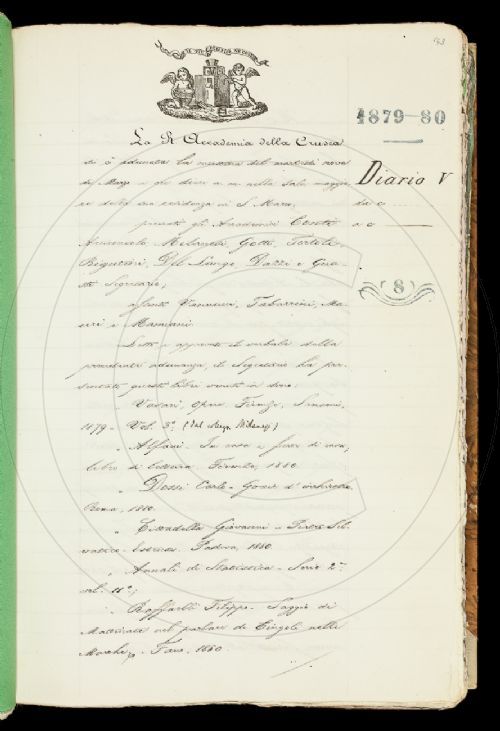 143
1879-80
Diario V
da c
a c
(8)
La R. Accademia della Crusca
si è adunata la mattina del martedì nove
di Marzo a ore dieci a m. nella sala maggio
re della sua residenza in S. Marco,
presenti gli Accademici Conti
Arciconsolo, Milanesi, Gotti, Tortoli,
Rigutini, Del Lungo, Dazzi e Gua
sti Segretario;
assenti Vannucci, Tabarrini, Ma
uri e Mamiani.
Letto e approvato il verbale della
precedente adunanza, il Segretario ha pre
sentato questi libri venuti in dono:
Vasari, Opere. Firenze, Sansoni,
1879 - Vol. 3º. (dal Segr. Milanesi)
" Alfani - In casa e fuori di casa,
libro di lettura. Firenze, 1880.
" Dossi Carlo - Gocce d'inchiostro.
Roma, 1880.
" Cittadella Giovanni - Pietro Sel
vatico Padova, 1880.
" Annali di Statistica - Serie 2ª
vol. 11º;
" Raffaelli Filippo - Saggio di
nel parlare di Cingoli nelle
Marche - Fano, 1880